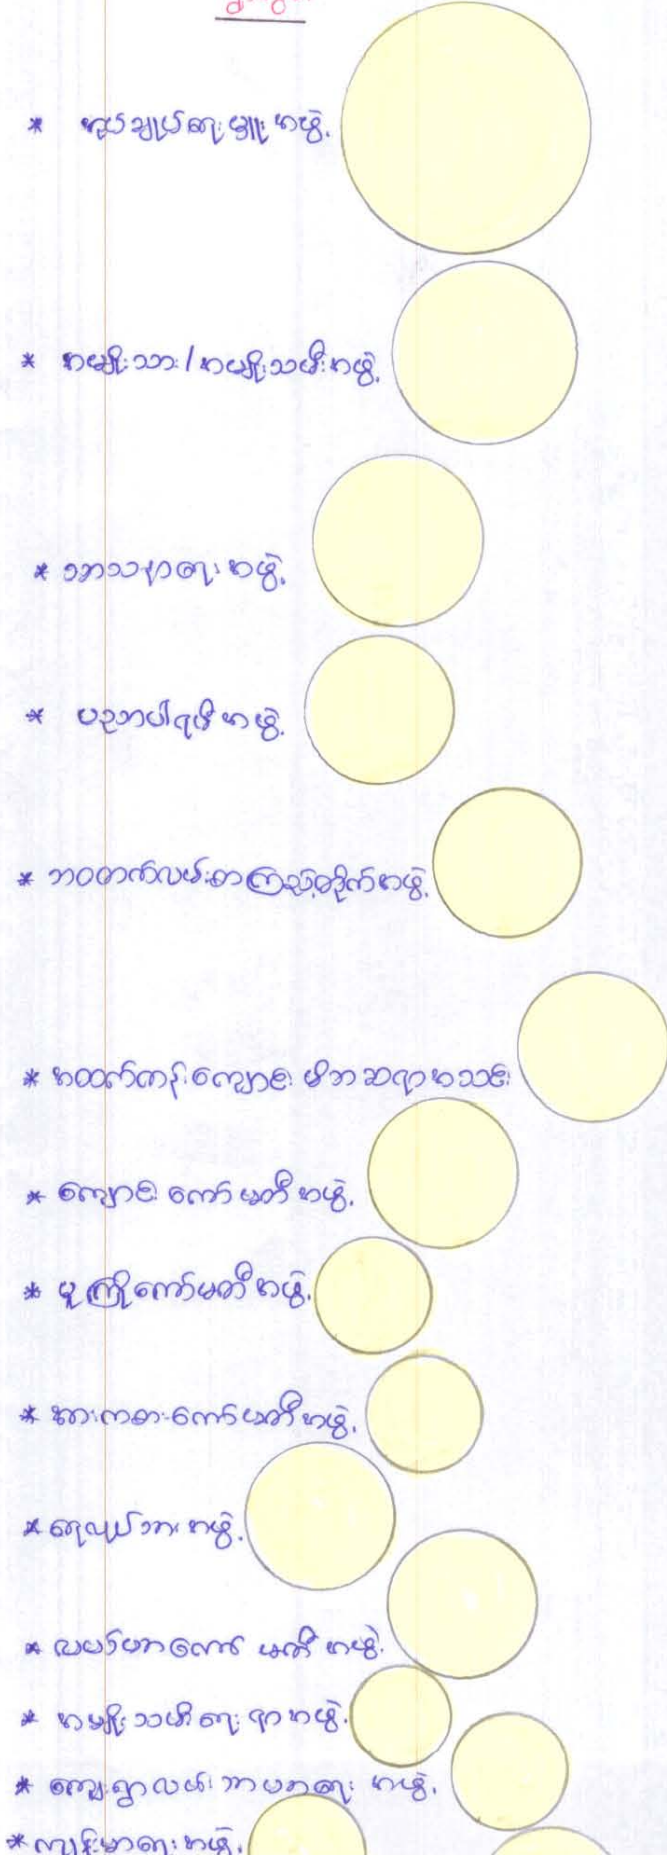 * အုပ်ချုပ်ရေးမှူး အဖွဲ့
* အမျိုးသား/အမျိုးသမီးအဖွဲ့
* ဘာသာရေး အဖွဲ့
* အဖွဲ့
* ဘဝတက်လမ်းစာကြည့်တိုက်အဖွဲ့
* အထက်တန်းကျောင်း မိဘဆရာအသင်း
* ကျောင်း ကော်မတီ အဖွဲ့
* မူကြိုကော်မတီ အဖွဲ့
* အားကစားကော်မတီအဖွဲ့
* ရေလုပ်သား အဖွဲ့
* လယ်ယာကော်မတီ အဖွဲ့
* အမျိုးသမီးရေးရာအဖွဲ့
* ကျေးရွာလမ်း အဖွဲ့
* ကျန်းမာရေးအဖွဲ့